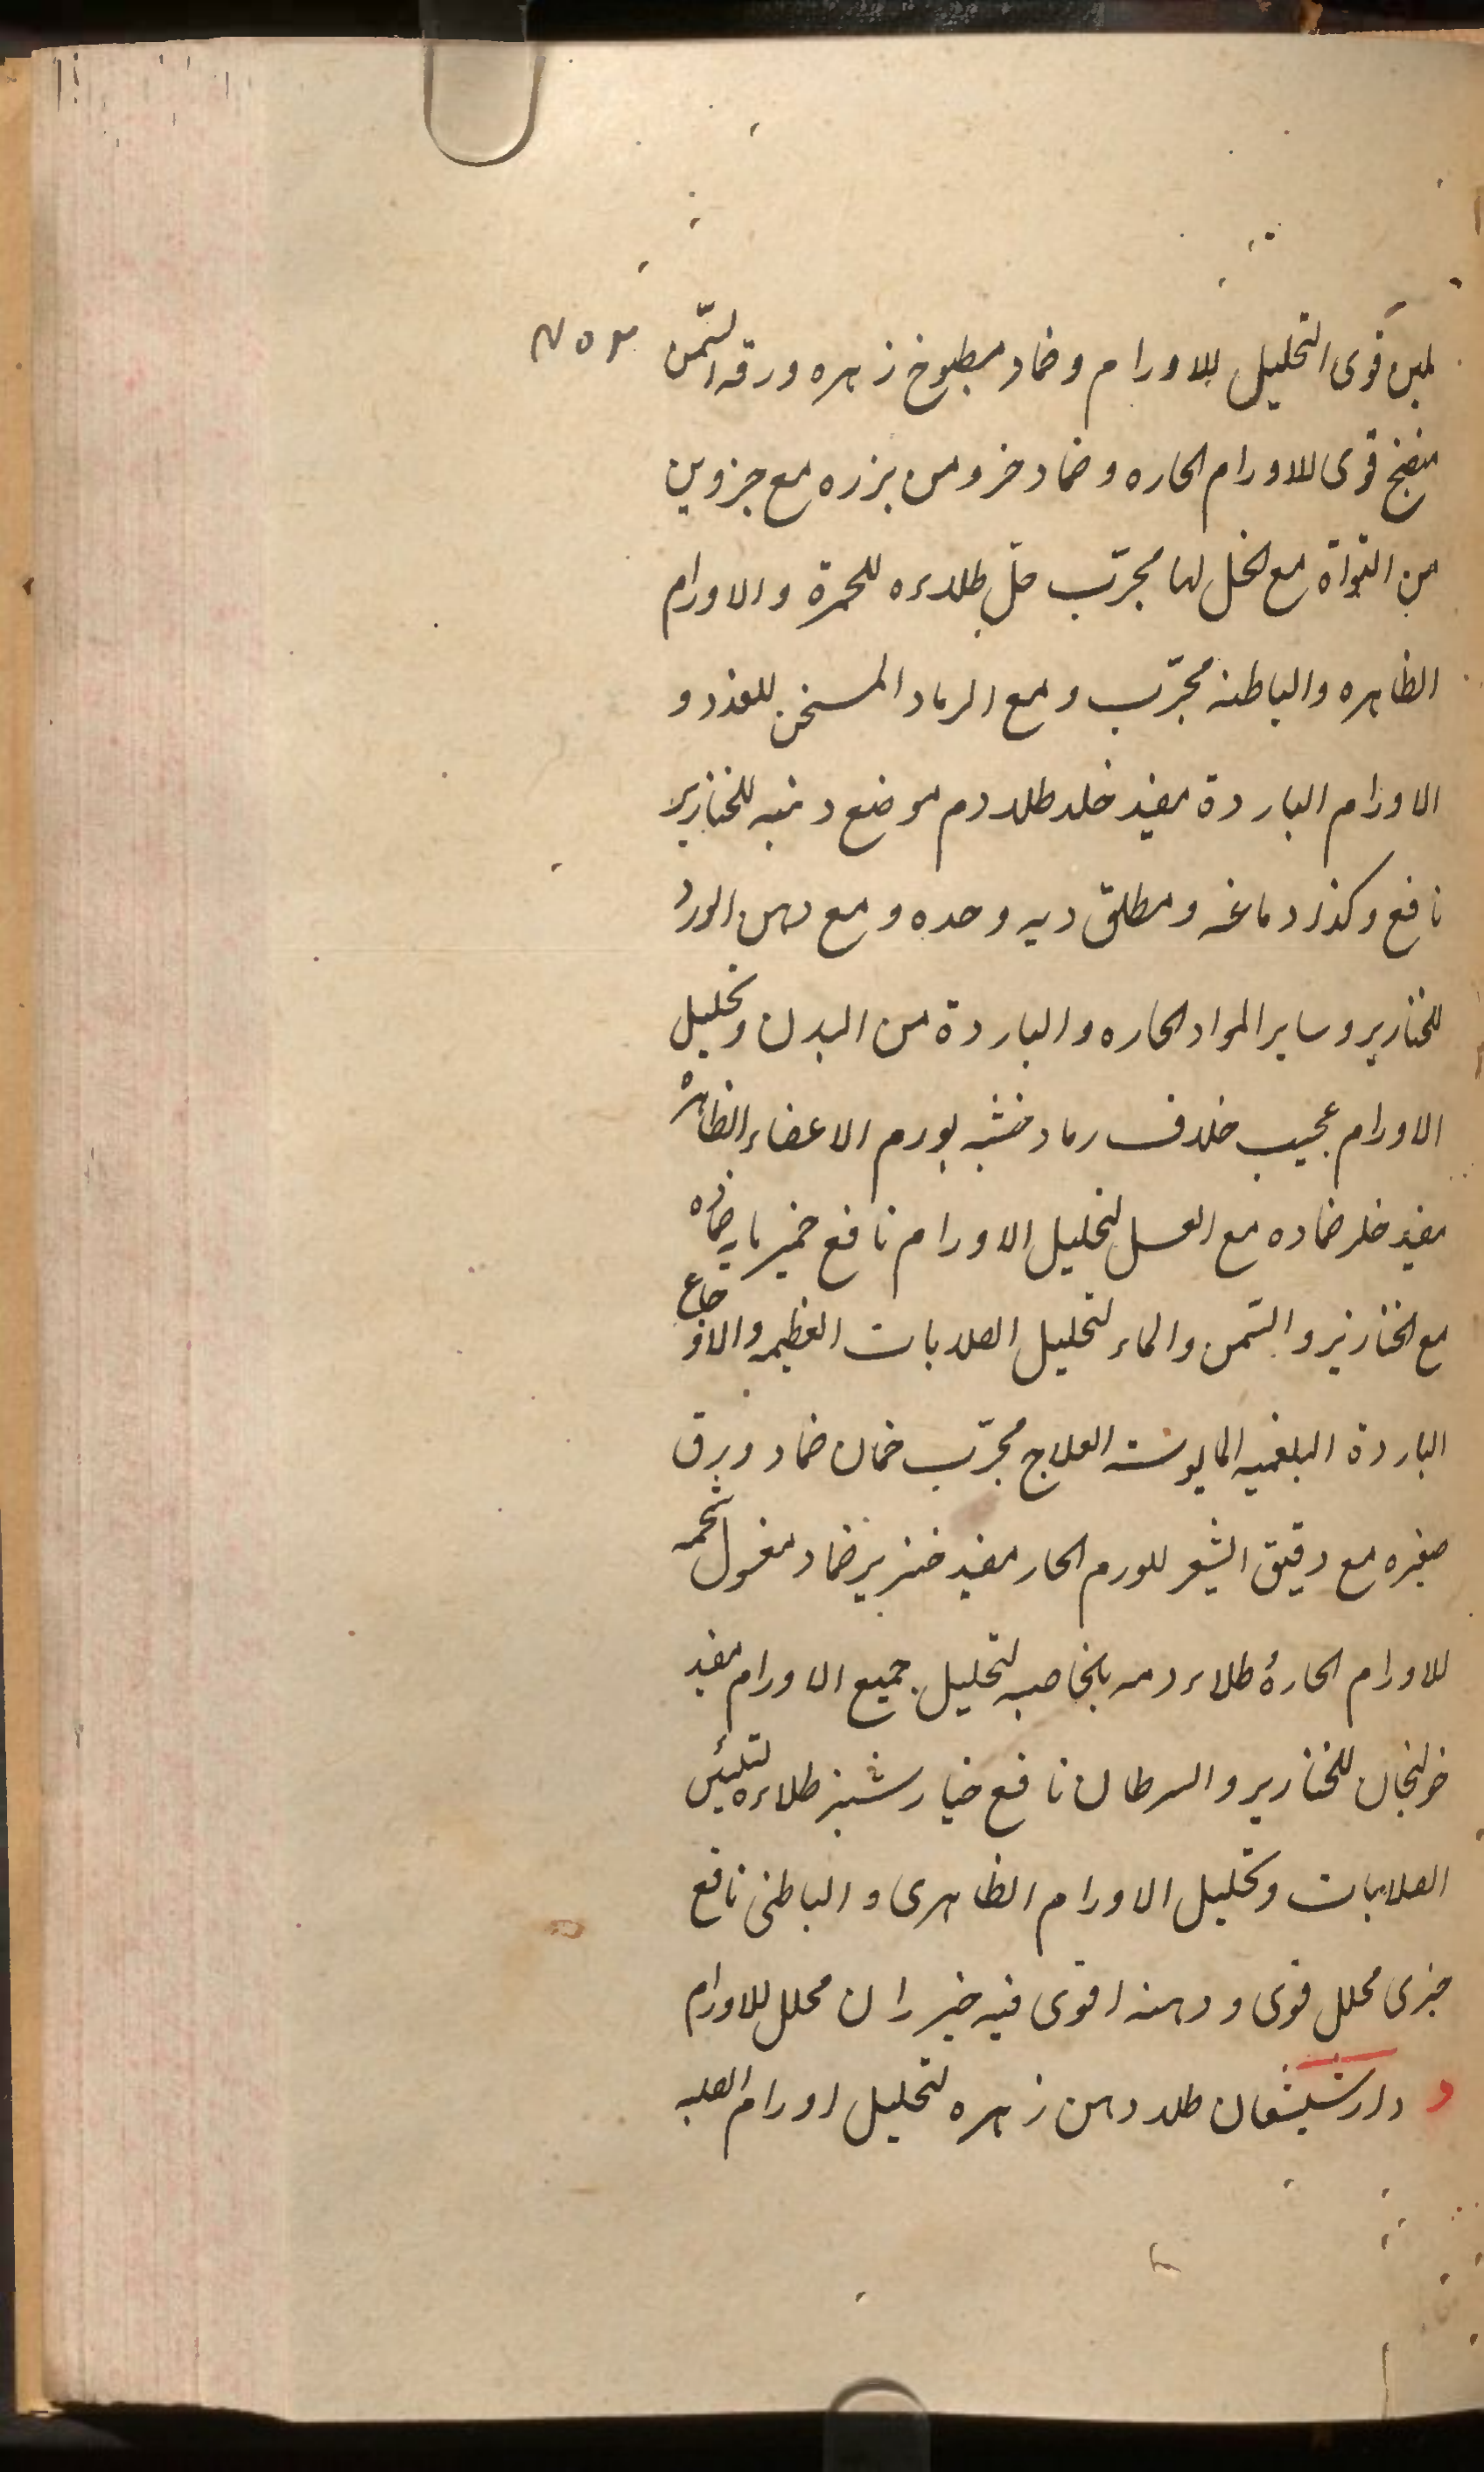 ملین قوی التحلیل للاورام وضماد مطبوخ زهره ورقه السّمن
منضج قوی للاورام الحاره وضماد جزو من بزره مع جزوین
من النواة مع الخل لها مجرّب خلّ طلاءه للحمرة والاورام
الظاهره والباطنه مجرّب ومع الرماد المسخن للغدد و
الاورام الباردة مفید خلد طلاء دم موضع ذنبه للخنازیر
نافع وکذا دماغه ومطلق دیه وحده ومع دهن الورد
للخنازیر وسایر المواد الحاره والباردة من البدن وتحلیل
الاورام عجیب خلاف رماد خشبه لورم الاعضاء الظاهرة
مفید خلر ضماده مع العسل لتحلیل الاورام نافع خمیر مایه ضماده
مع الخنازیر والسّمن والماء لتحلیل الصلابات العظیمه والاوجاع
الباردة البلغمیه المایوسته العلاج مجرّب خمان ضماد ورق
صغیره مع دقیق الشعیر للورم الحار مفید خنزیر ضماد مغسول شحمه
للاورام الحارة طلاء دمه بالخاصیه لتحلیل جمیع الاورام مفید
خولنجان للخنازیر والسرطان نافع خیارشنبر طلاءه لتلیین
الصلابات وتحلیل الاورام الظاهری والباطنی نافع
خیری محلل قوی ودهنه اقوی فیه خیرران محلل للاورام
د دارشیشعان طلاء دهن زهره لتحلیل اورام الصلبه